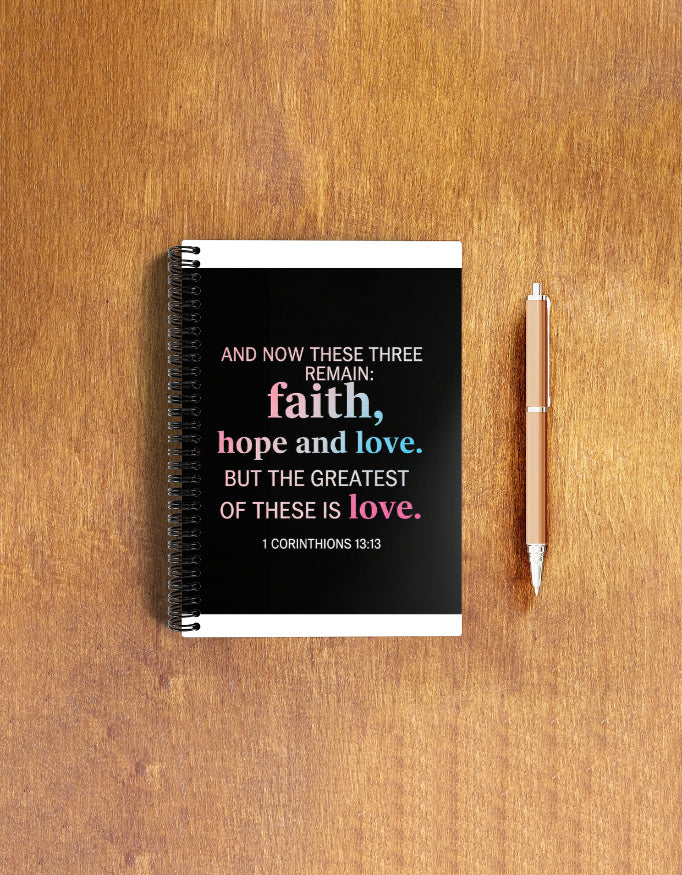 AND NOW THESE THREE
REMAIN:
faith,
hope and love.
BUT THE GREATEST
OF THESE IS love.
1 CORINTHIONS 13:13